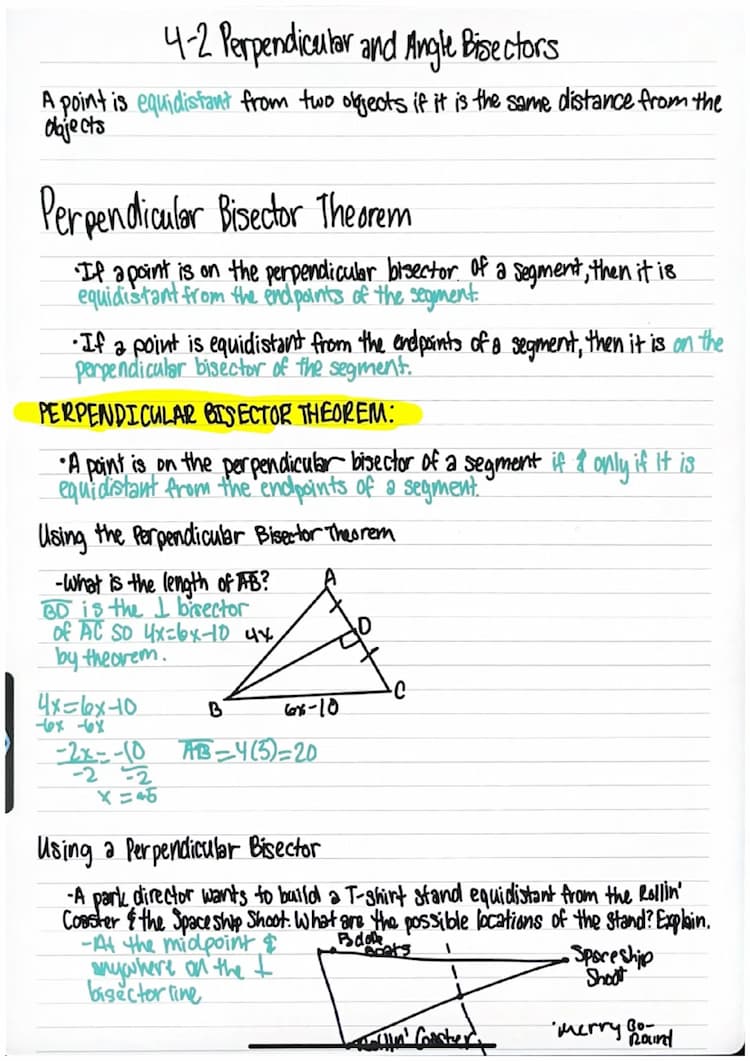 4-2 Perpendicular and Angle Bisectors
A point is equidistant from two objects if it is the same distance from the
objects
Perpendicular Bisector Theorem
•If a point is on the perpendicular bisector of a segment, then it is
equidistant from the endpoints of the segment.
•If a point is equidistant from the endpoints of a segment, then it is on the
perpendicular bisector of the segment.
PERPENDICULAR BISECTOR THEOREM:
•A point is on the perpendicular bisector of a segment if & only if it is
equidistant from the endpoints of a segment.
Using the Perpendicular Bisector Theorem
-What is the length of AB?
A
BD is the ⊥ bisector
of AC so 4x=6x-10
by theorem.
4x
D
C
B
6x-10
4x=6x-10
-6x -6x
-2x=-10
-2 -2
AB=4(5)=20
x=5
Using a Perpendicular Bisector
-A park director wants to build a T-shirt stand equidistant from the Rollin'
Coaster & the Spaceship Shoot. What are the possible locations of the stand? Explain.
-At the midpoint &
anywhere on the ⊥
bisector line
Boats
Spaceship
Shoot
Rollin' Coaster
•Merry Go-
Round